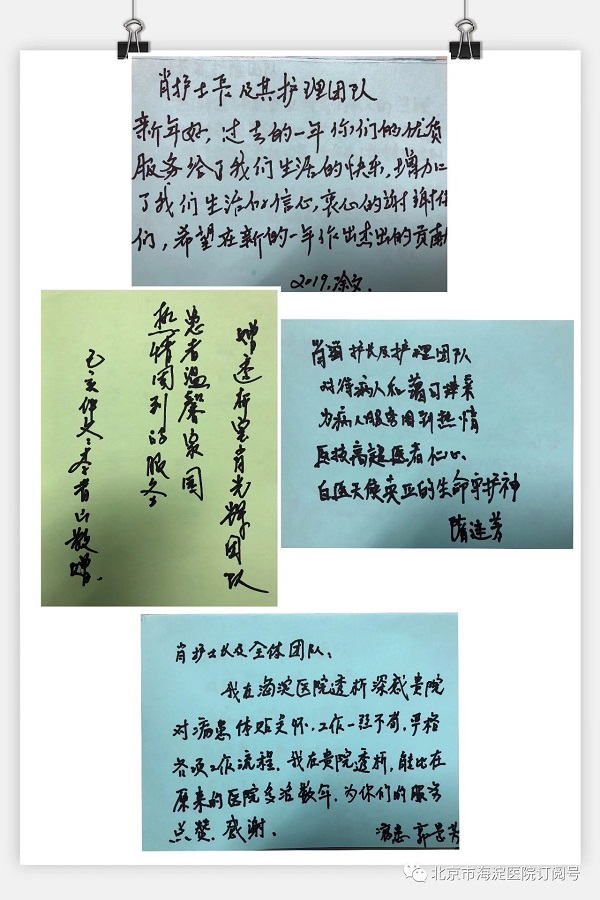 肖护士长及其护理团队
新年好，过去的一年你们的优质
服务给了我们生活的快乐，增加
了我们生活的信心，衷心的谢谢你
们，希望在新的一年作出杰出的贡献
2019.徐文.
赠透析室肖光辉团队
患者温馨家园
热情周到的服务
李育山敬赠.
护长及护理团队
对待病人和蔼可亲
为病人服务周到热情
医技高超医者仁心
白衣天使真正的生命守护神
隋连芳
肖护士长及全体团队、
我在海淀医院透析深感贵院
对病患体贴关怀、工作一丝不苟，严格
各项工作流程，我在贵院透析，能比在
原来的医院多活数年，为你们的服务
点赞，感谢。
病患 郭
北京市海淀医院订阅号